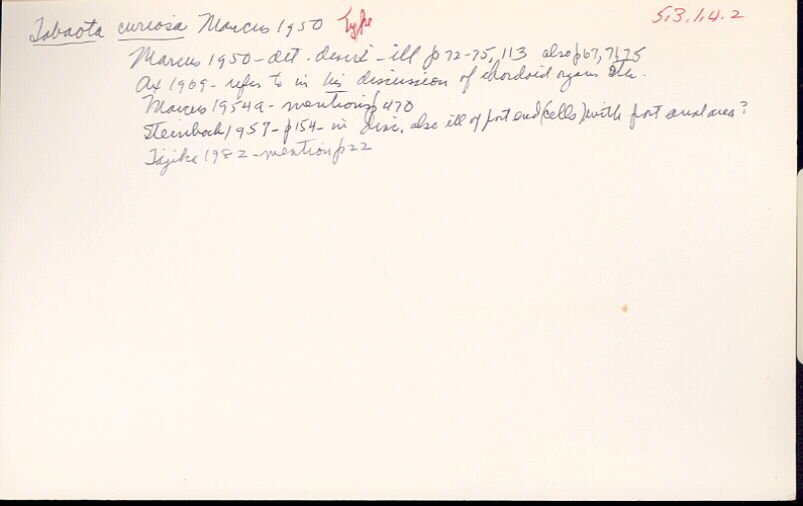 Tabaota curiosa Marcus 1950 Type 5.3.1.4.2
Marcus 1950 - det. descr - ill p 72-75, 113 also p 67, 71, 75
Ax 1969 - refers to in his discussion of chordoid organs etc.
Marcus 1954a - mention p 470
Steinbock 1957 - p 154 - in disc. also ill of post end (cells) with post anal area?
Tajika 1982 - mention p 22